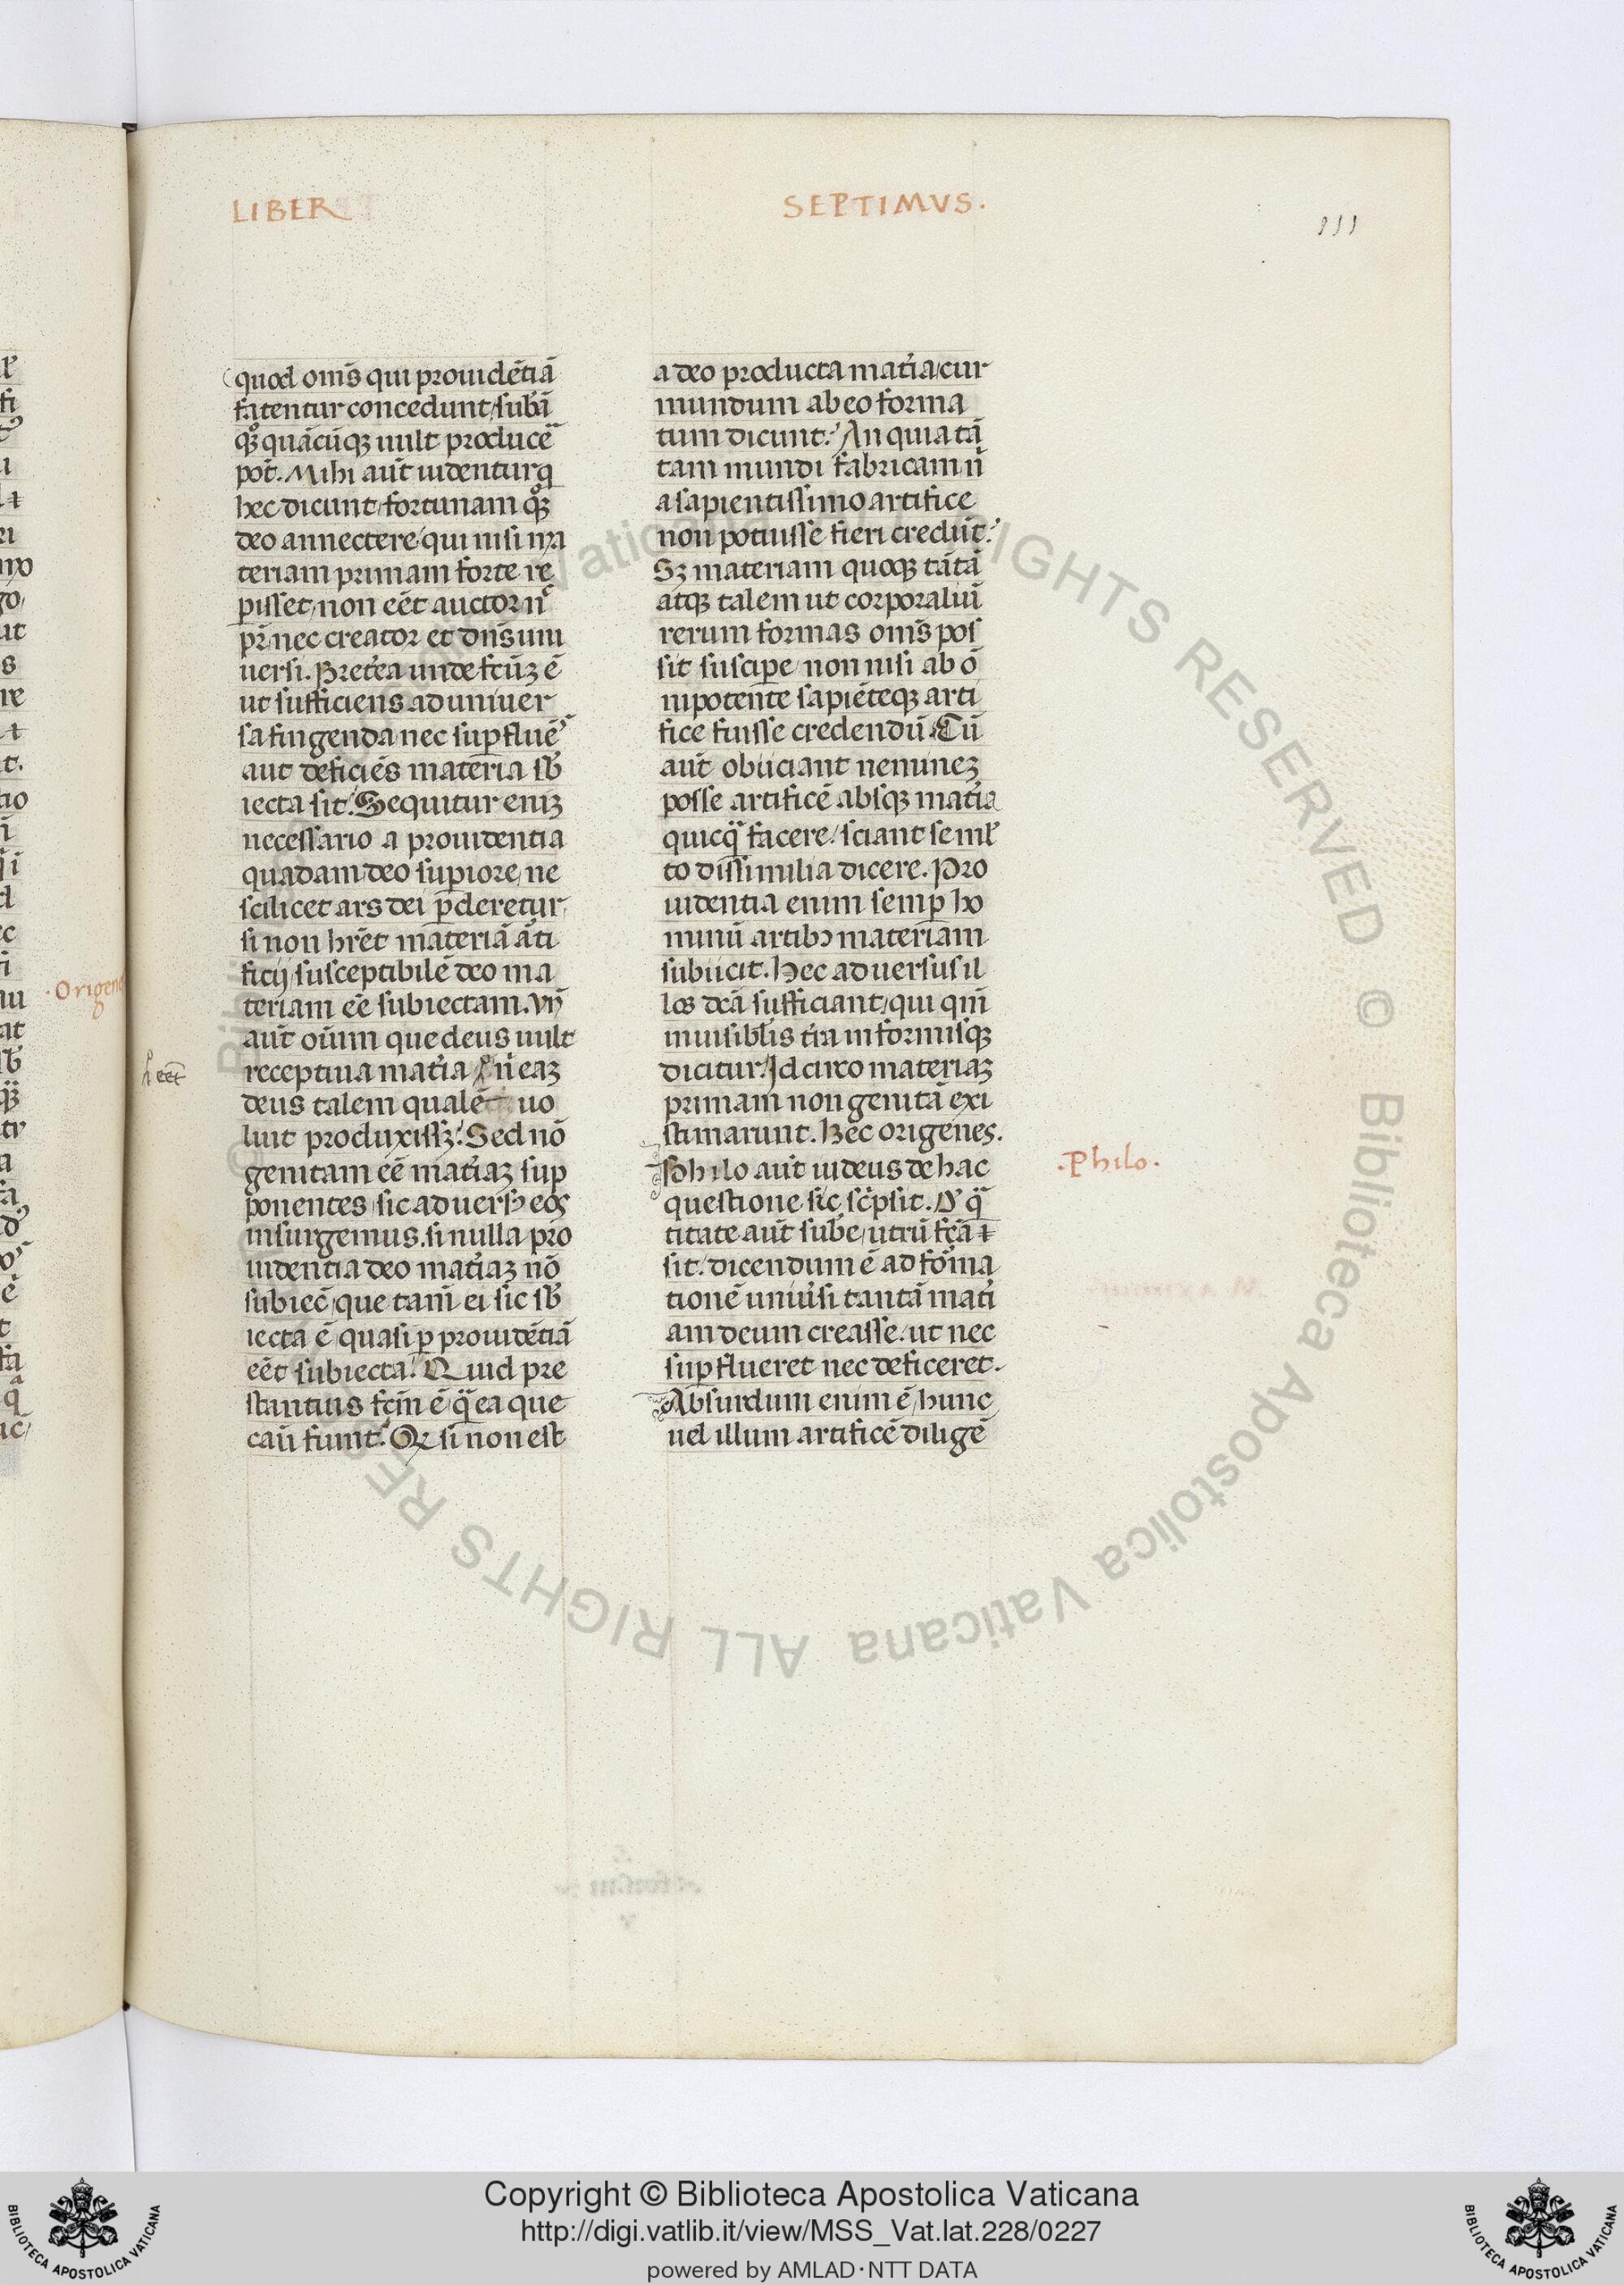 LIBER SEPTIMVS.
111
quod om̄s qui prouidētiā
fatentur concedunt, sub̄ā
qͦꝫ quācūqꝫ uult producē
pōt. Mihi aūt uidentur q
hec dicunt, fortunam qͦꝫ
deo annectere, qui nisi ma
teriam primam forte re
pisset, non eēt auctor n̄
pr̄ nec creator et dn̄s uni
uersi. Pretea unde fc̄uꝫ ē
ut sufficiens ad uniuer
sa fingenda nec suꝑfluē
aut deficiēs materia sb̄
iecta sit? Sequitur eniꝫ
necessario a prouidentia
quadam deo suꝑiore, ne
scilicet ars dei ꝑderetur,
si non hr̄et materiā āti
ficij susceptibilē deo ma
teriam eē subiectam. Vn̄
aūt oīum que deus uult
receptiua mat̄ia n̄ eaꝫ
deus talem qualē uo
luit produxissꝫ? Sed nō
genitam eē mat̄iaꝫ sup
ponentes, sic aduersꝰ eos
insurgemus. si nulla pro
uidentia deo mat̄iaꝫ nō
subiec̄, que tam̄ ei sic sb̄
iecta ē, quasi ꝑ prouidētiā
eēt subiecta? Quid pre
stantius fc̄m ē, q̄ ea que
cāu fiunt? Qꝛ si non est
eēt
a deo producta mat̄ia, cur
mundum ab eo forma
tum dicunt? An quia tā
tam mundi fabricam n̄
a sapientissimo artifice
non potuisse fieri credūt?
Sꝫ materiam quoqꝫ tātā
atqꝫ talem ut corporaliū
rerum formas om̄s pos
sit susciꝑe, non nisi ab ō
nipotente sapiēteqꝫ arti
fice fuisse credendū. Cū
aūt obiiciant nemineꝫ
posse artificē absqꝫ mat̄ia
quicq̄ facere, sciant se ml̄
to dissimilia dicere. Pro
uidentia enim semꝑ ho
minū artibꝫ materiam
subiicit. Hec aduersus il
los dc̄a sufficiant, qui qm̄
inuisibl̄is tr̄a informisqꝫ
dicitur. Idcirco materiaꝫ
primam non genitā exi
stimarunt. Hec origenes.
Philo aūt iudeus de hac
questione sic sc̄psit. Dꝰ q̄
titate aūt sub̄e, utrū fc̄a ɫ
sit. dicendum ē ad forma
tionē uniuersi tantā mat̄i
am deum creasse, ut nec
suꝑflueret nec deficeret.
Absurdum enim ē, hunc
uel illum artificē diligē
.Philo.
.Origene
Copyright © Biblioteca Apostolica Vaticana
http://digi.vatlib.it/view/MSS_Vat.lat.228/0227
powered by AMLAD·NTT DATA
BIBLIOTECA APOSTOLICA VATICANA
BIBLIOTECA APOSTOLICA VATICANA
© Biblioteca Apostolica Vaticana ALL RIGHTS RESERVED © Biblioteca Apostolica Vaticana ALL RIGHTS RESERVED